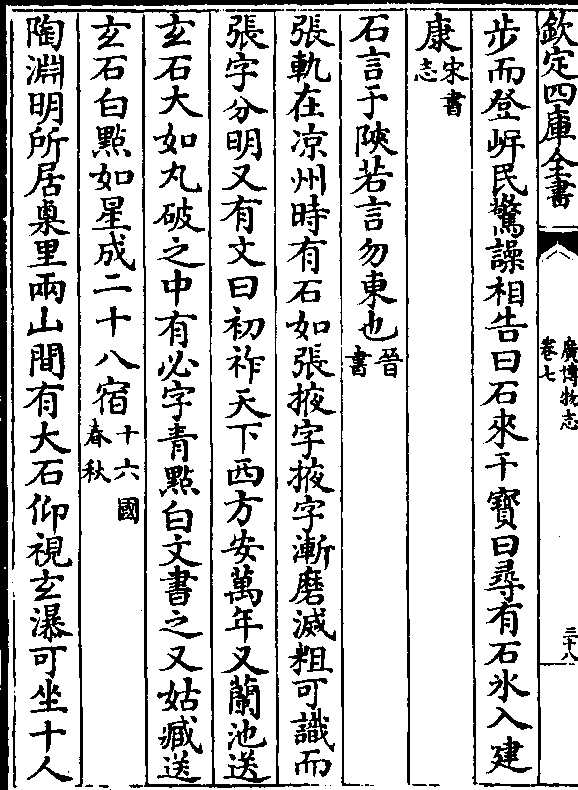 欽定四庫全書
廣博物志
卷七
三十八
步而登岍民驚譟相告曰石來干寶曰尋有石氷入建
康宋書志
石言于陜若言勿東也晉書
張軌在凉州時有石如張掖字掖字漸磨滅粗可識而
張字分明又有文曰初祚天下西方安萬年又蘭池送
玄石大如丸破之中有必字青點白文書之又姑臧送
玄石白點如星成二十八宿十六國春秋
陶淵明所居臬里兩山間有大石仰視玄瀑可坐十人